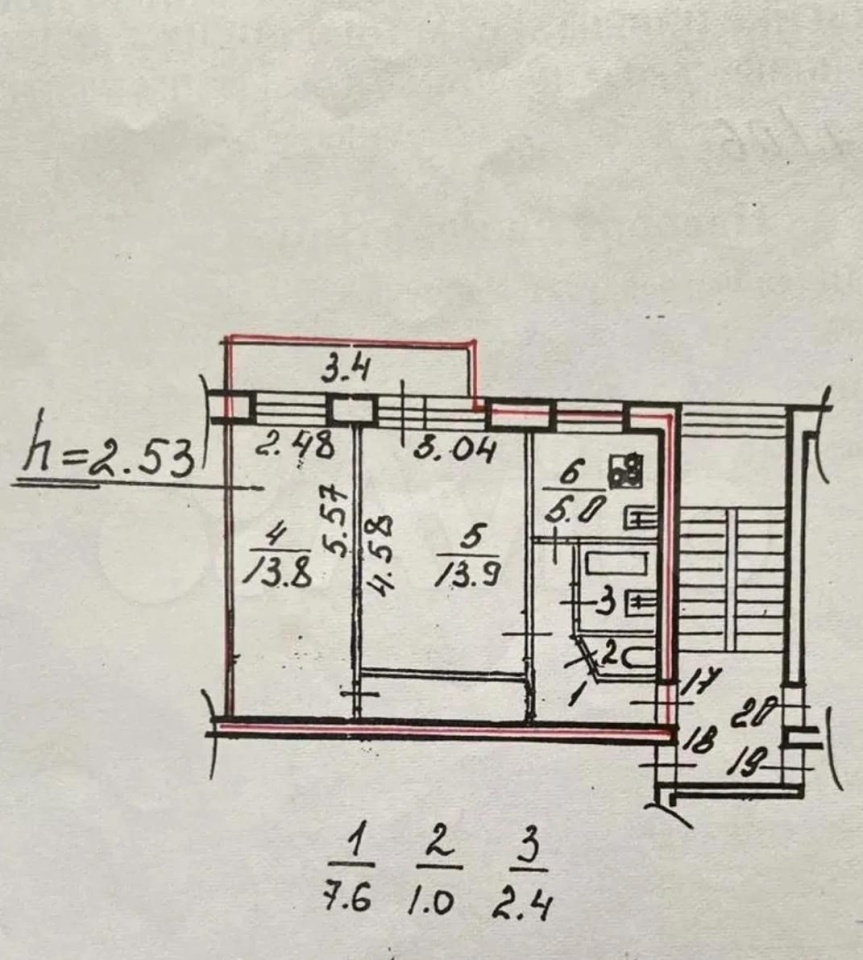 3.4
2.48
3.04
h=2.53
6
5.0
5.57
4.58
4
13.8
5
13.9
3
2
1
17
20
18
19
1 2 3
7.6 1.0 2.4